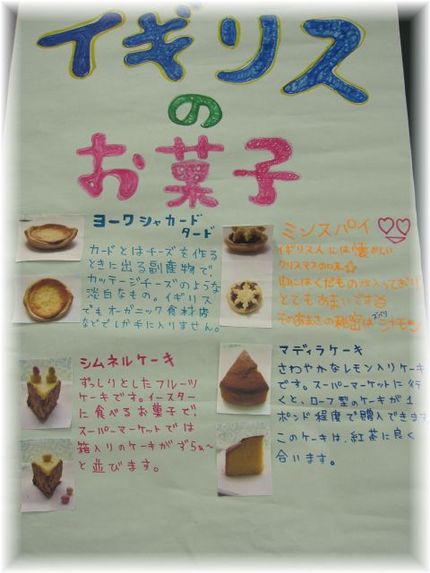 イギリス
の
お菓子
ヨークシャカード
タード
カードとはチーズを作る
ときに出る副産物で
カッテージチーズのような
淡白なもの。イギリス
でもオーガニック食材店
などでしか手に入りません。
ミンスパイ
イギリス人には懐かしい
クリスマスの味☆
中にはくだものが入っており
とてもあまいです
そのあまさの秘密は
シムネルケーキ
ずっしりとしたフルーツ
ケーキです。イースター
に食べるお菓子で
スーパーマーケットでは
箱入りのケーキがずらぁ〜
と並びます。
マディラケーキ
さわやかなレモン入りケーキ
です。スーパーマーケットに行
くと、ローフ型のケーキが1
ポンド程度で購入できます
このケーキは、紅茶に良く
合います。